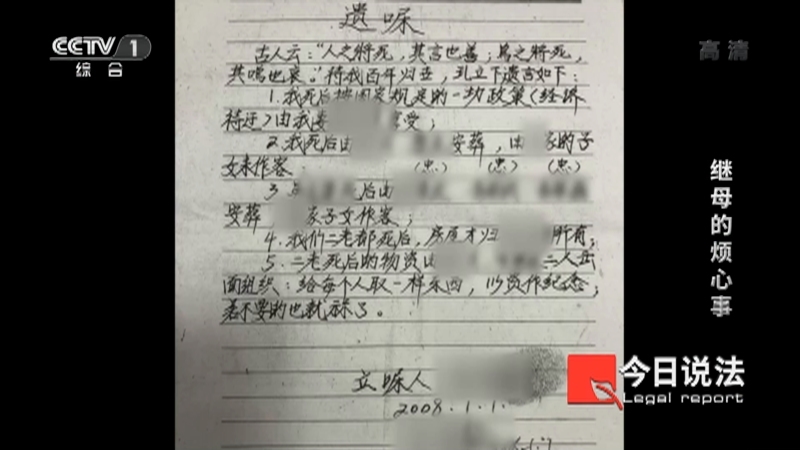 CCTV 1
综合
高清
遗嘱
古人云:"人之将死,其言也善;鸟之将死,
其鸣也哀。"待我百年归世,
立下遗言如下:
1.我死后按国家规定的一切政策(经济
待迂)由我妻 享受;
2.我死后由 安葬,由 家的子
女来作客 (忠) (忠) (忠)
3. 后由
安葬 家子女作客;
4.我们二老都死后,房屋才归 所有;
5.二老死后的物资由 二人出
面组织:给每个人取一样东西,以资作纪念;
若不要的也就 了。
立嘱人
2008.1.1.
继母的烦心事
今日说法
Legal report